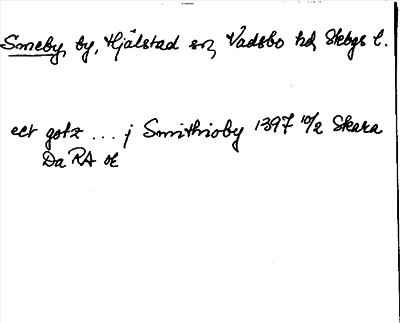 Smeby, by, Hjälstad sn, Vadsbo hd, Skbgs l.
ett gotz ... j Smithioby 1397 10/2 Skara
Da RA or